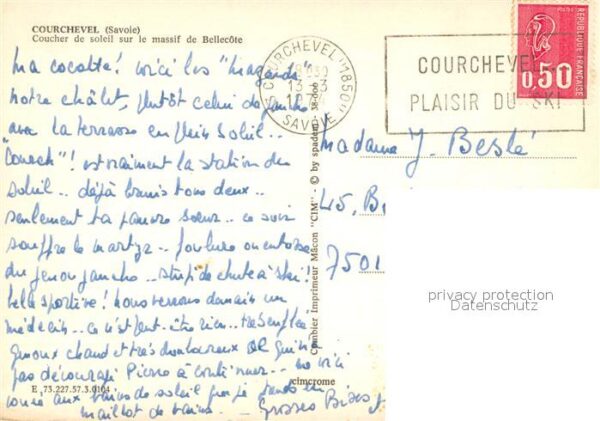 COURCHEVEL (Savoie)
Coucher de soleil sur le massif de Bellecôte
Ma cocotte! voici les "
notre châlet, plutôt celui de gauche
avec la terrasse en plein soleil..
"Courch"! est vraiment la station du
soleil.. déjà brunis tous deux..
seulement ta pauvre soeur.. ce soir
souffre le martyre.. foulure ou entorse
du genou gauche.. stupide chute à ski!
belle sportive! nous verrons demain un
médecin.. ce n'est peut-être rien.. très enflé
Genoux chaud et très douloureux
pas découragé Pierre à continuer.. me voici
aux bains de soleil que je prends en
maillot de bains. Grosses Bises
E 73.227.57.3.0104
COURCHEVEL "1850"
SAVOIE
COURCHEVEL
PLAISIR DU SKI
POSTES
REPUBLIQUE FRANÇAISE
0,50
Combier Imprimeur Mâcon "CIM" - © by spadem
cimcrome
Madame J. Beslé
45, B
7501
privacy protection
Datenschutz